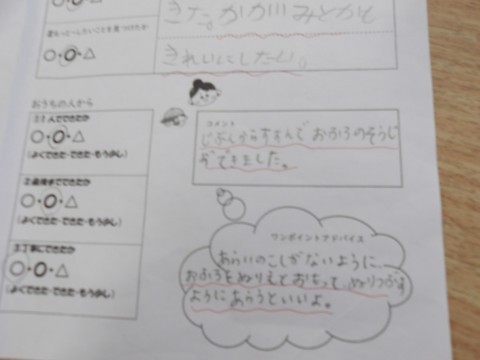 ○・○・△
きた。かがみとかも
②もっと~したいことを見つけたか
○・○・△
きれいにしたい。
おうちの人から
①1人でできたか
○・○・△
(よくできた・できた・もう少し)
②最後までできたか
○・○・△
(よくできた・できた・もう少し)
③丁寧にできたか
○・○・△
(よくできた・できた・もう少し)
コメント
じぶんからすすんでおふろのそうじ
ができました。
ワンポイントアドバイス
あらいのこしがないように、
おふろをぬりえとおもって、ぬりつぶす
ようにあらうといいよ。